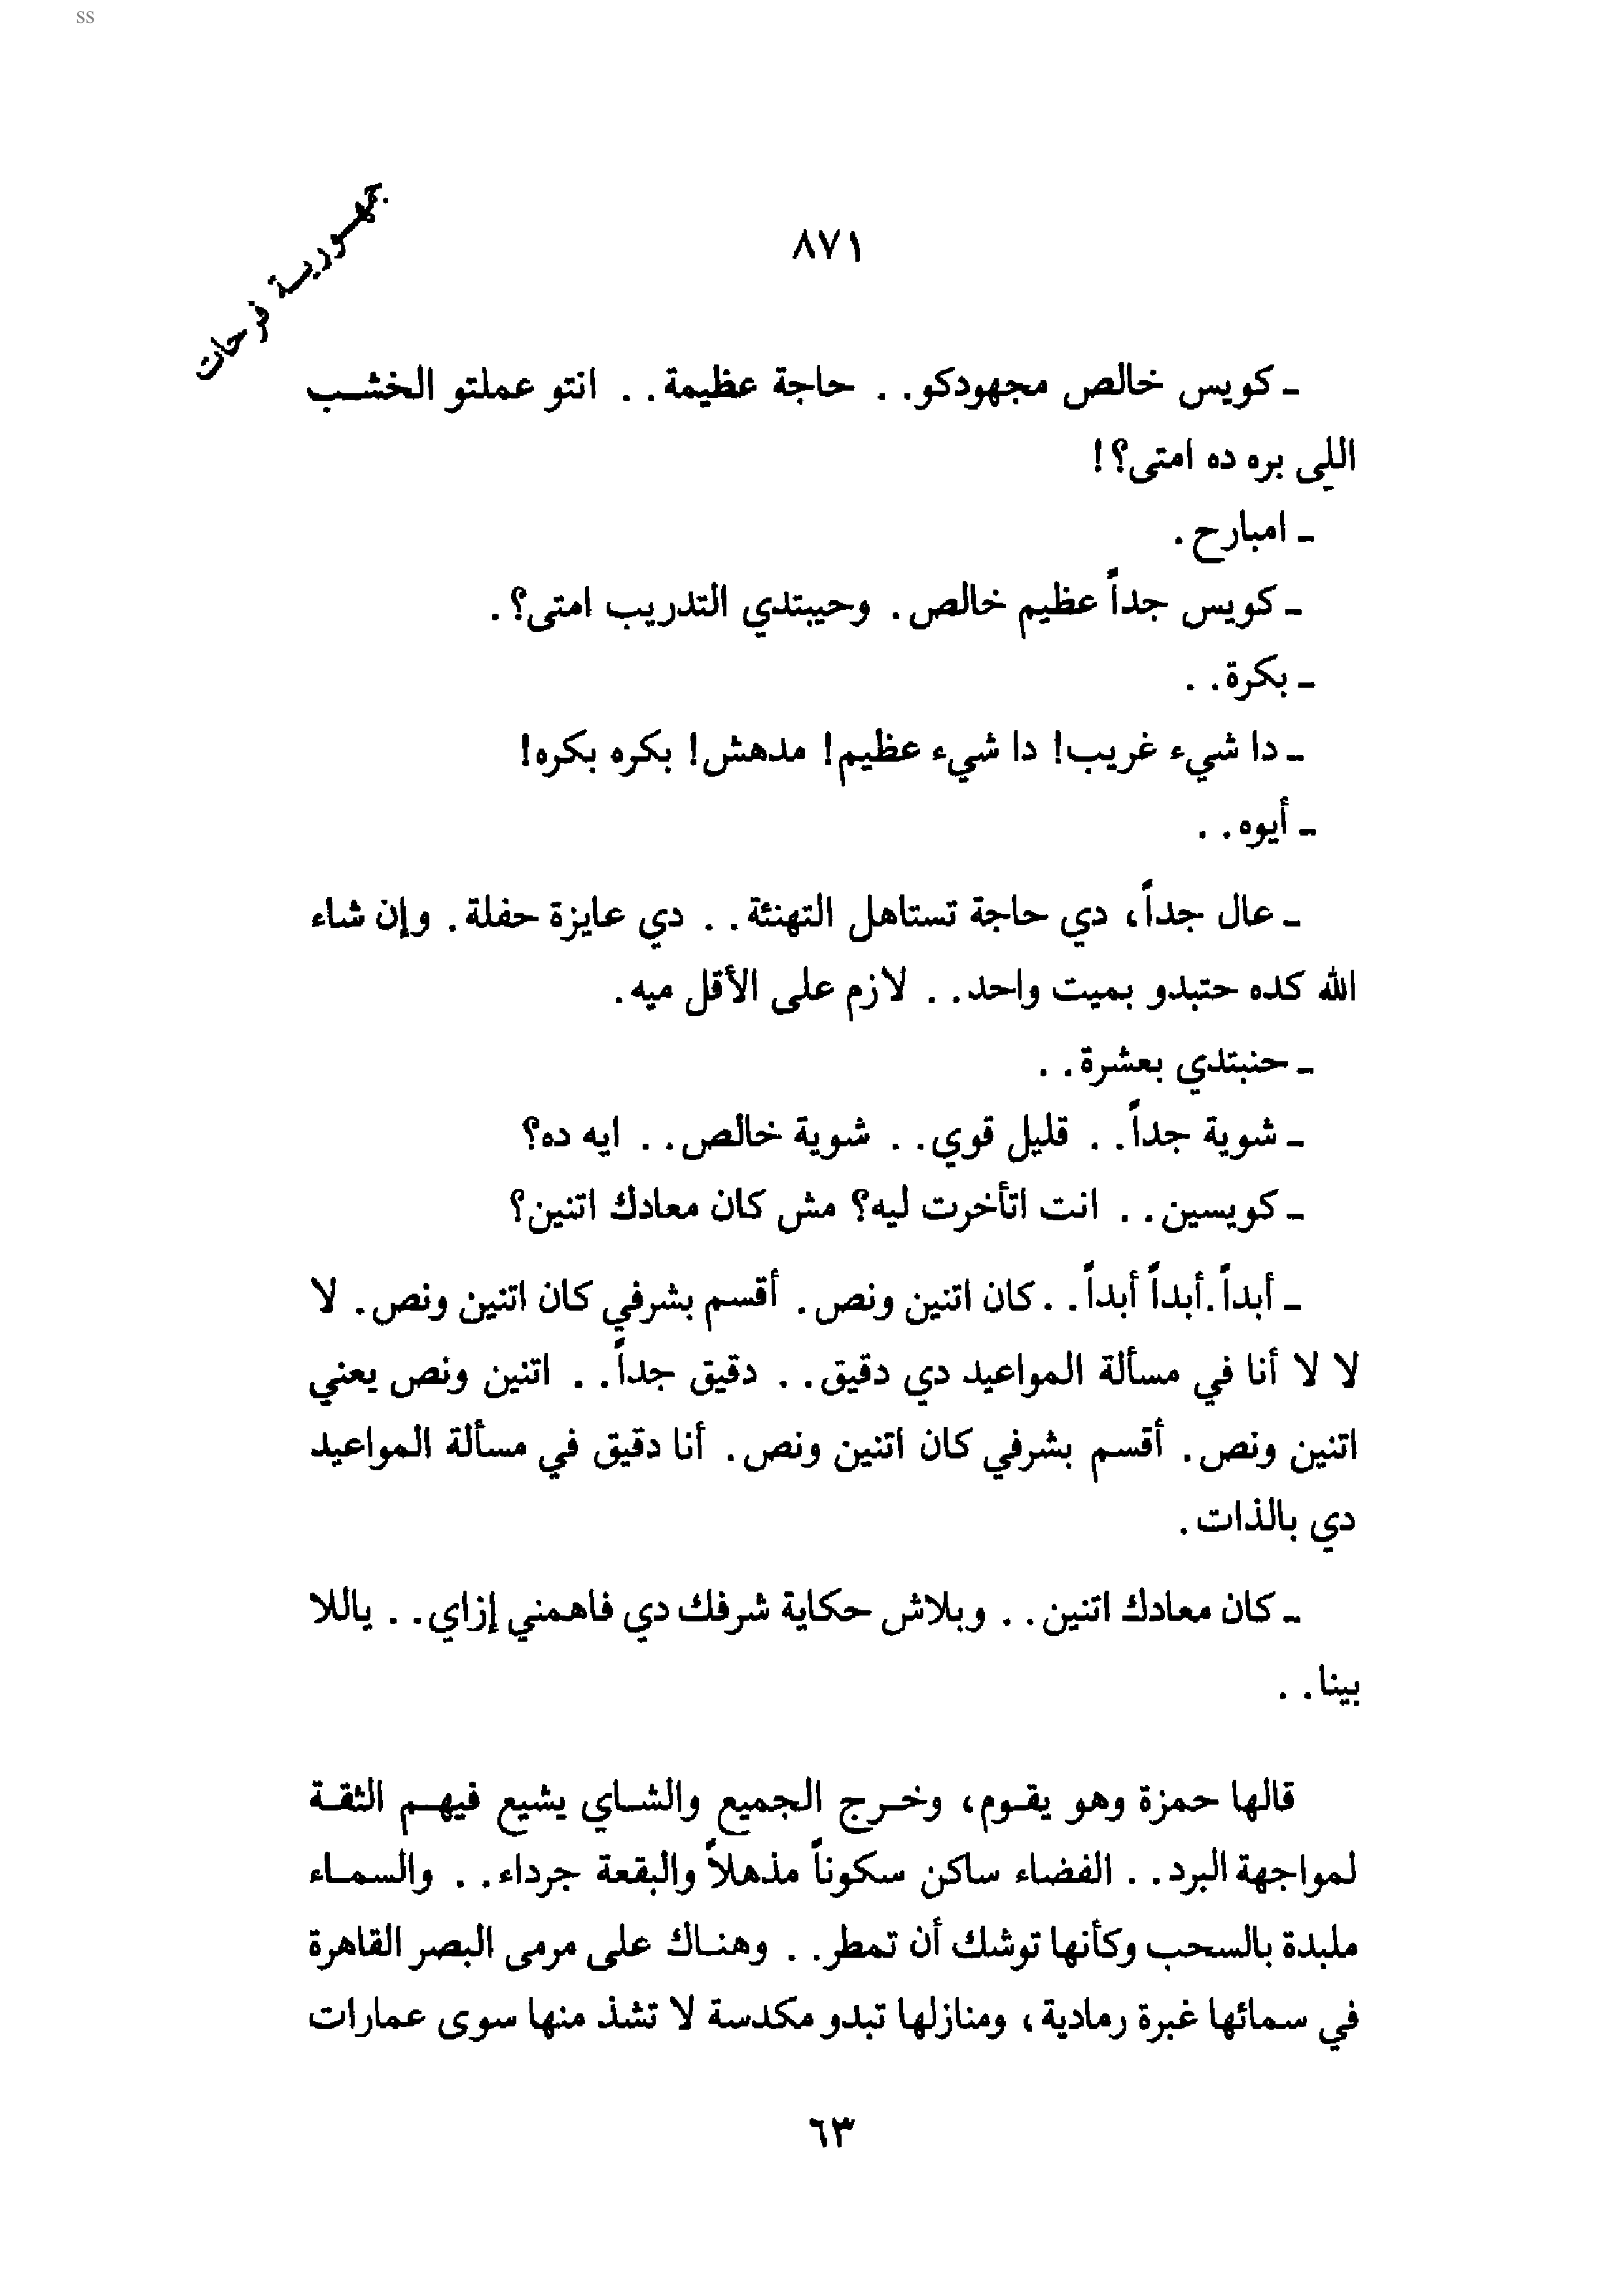 ss
جمهورية فرحات
٨٧١
ـ كويس خالص مجهودكو. . حاجة عظيمة. . انتو عملتو الخشب
اللي بره ده امتى؟!
ـ امبارح.
ـ كويس جداً عظيم خالص. وحيبتدي التدريب امتى؟.
ـ بكرة. .
ـ دا شيء غريب! دا شيء عظيم! مدهش! بكره بكره!
ـ أيوه. .
ـ عال جداً، دي حاجة تستاهل التهنئة. . دي عايزة حفلة. وإن شاء
الله كده حتبدو بميت واحد. . لازم على الأقل ميه.
ـ حنبتدي بعشرة. .
ـ شوية جداً. . قليل قوي. . شوية خالص. . ايه ده؟
ـ كويسين. . انت اتأخرت ليه؟ مش كان معادك اتنين؟
ـ أبداً. أبداً أبداً. . كان اتنين ونص. أقسم بشرفي كان اتنين ونص. لا
لا لا أنا في مسألة المواعيد دي دقيق. . دقيق جداً. . اتنين ونص يعني
اتنين ونص. أقسم بشرفي كان اتنين ونص. أنا دقيق في مسألة المواعيد
دي بالذات.
ـ كان معادك اتنين. . وبلاش حكاية شرفك دي فاهمني إزاي. . ياللا
بينا. .
قالها حمزة وهو يقوم، وخرج الجميع والشاي يشيع فيهم الثقة
لمواجهة البرد. . الفضاء ساكن سكوناً مذهلاً والبقعة جرداء. . والسماء
ملبدة بالسحب وكأنها توشك أن تمطر. . وهناك على مرمى البصر القاهرة
في سمائها غبرة رمادية، ومنازلها تبدو مكدسة لا تشذ منها سوى عمارات
٦٣